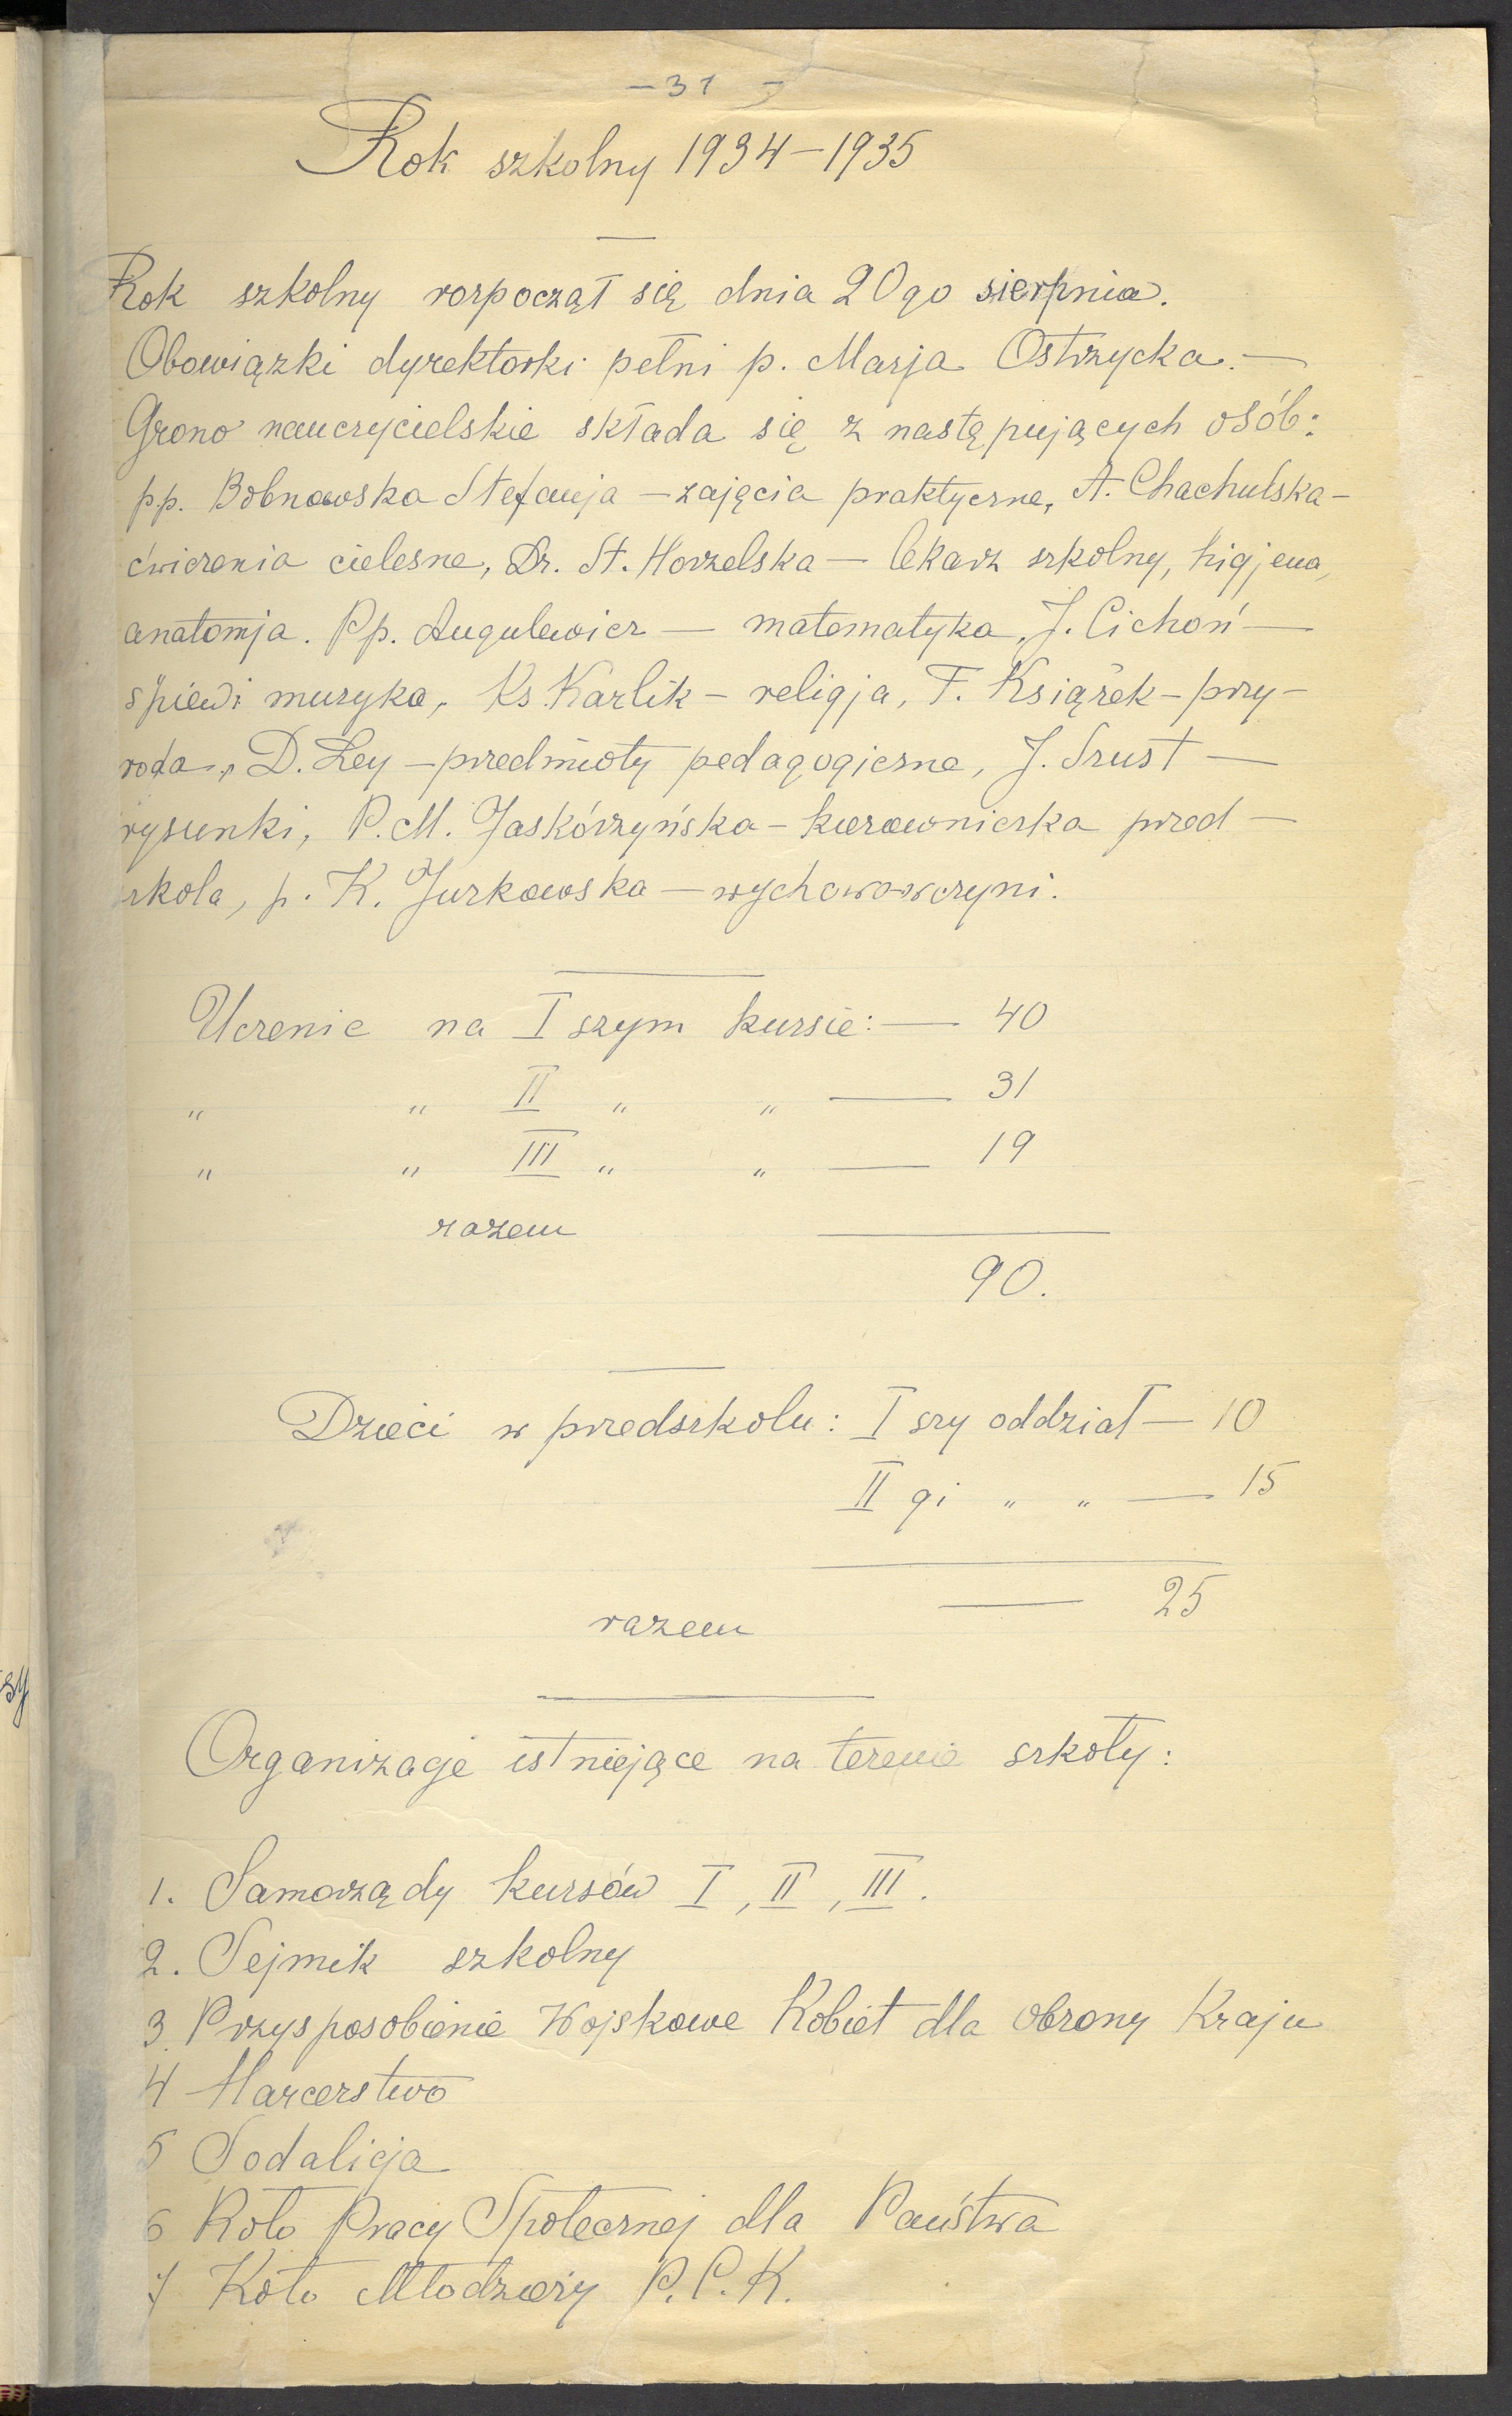 – 31 –
Rok szkolny 1934–1935
Rok szkolny rozpoczął się dnia 20go sierpnia.
Obowiązki dyrektorki pełni p. Marja Ostrzycka. —
Grono nauczycielskie składa się z następujących osób:
pp. Bobnowska Stefanja – zajęcia praktyczne, A. Chachulska –
ćwiczenia cielesne, Dr. St. Horzelska — lekarz szkolny, higjena,
anatomja. Pp. Augulewicz — matematyka, J. Cichoń —
śpiew i muzyka, Ks. Karlik – religja, F. Książek – przy-
roda, D. Ley – przedmioty pedagogiczne, J. Szust —
rysunki, P. M. Jaskórzyńska – kierowniczka przed —
szkola, p. K. Jurkowska — wychowawczyni.
Uczenic na I szym kursie: — 40
„ „ II „ „ — 31
„ „ III „ „ — 19
razem
90.
Dzieci w przedszkolu: I szy oddział — 10
II gi „ „ — 15
— 25
razem
Organizacje istniejące na terenie szkoły:
1. Samorządy kursów I, II, III.
2. Sejmik szkolny
3 Przysposobienie Wojskowe Kobiet dla obrony Kraju
4 Harcerstwo
5 Sodalicja
6 Koło Pracy Społecznej dla Państwa
7 Koło Młodzieży P.C.K.